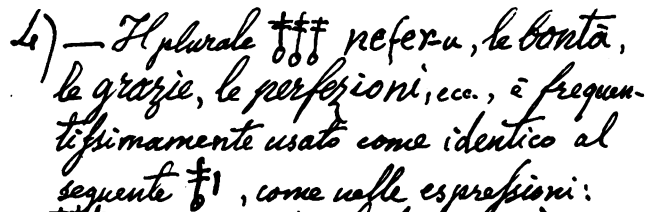 4) — Il plurale 𓄤𓄤𓄤 nefer-u, le bontà,
le grazie, le perfezioni, ecc., è frequen-
tissimamente usato come identico al
seguente 𓄤𓏤, come nelle espressioni: